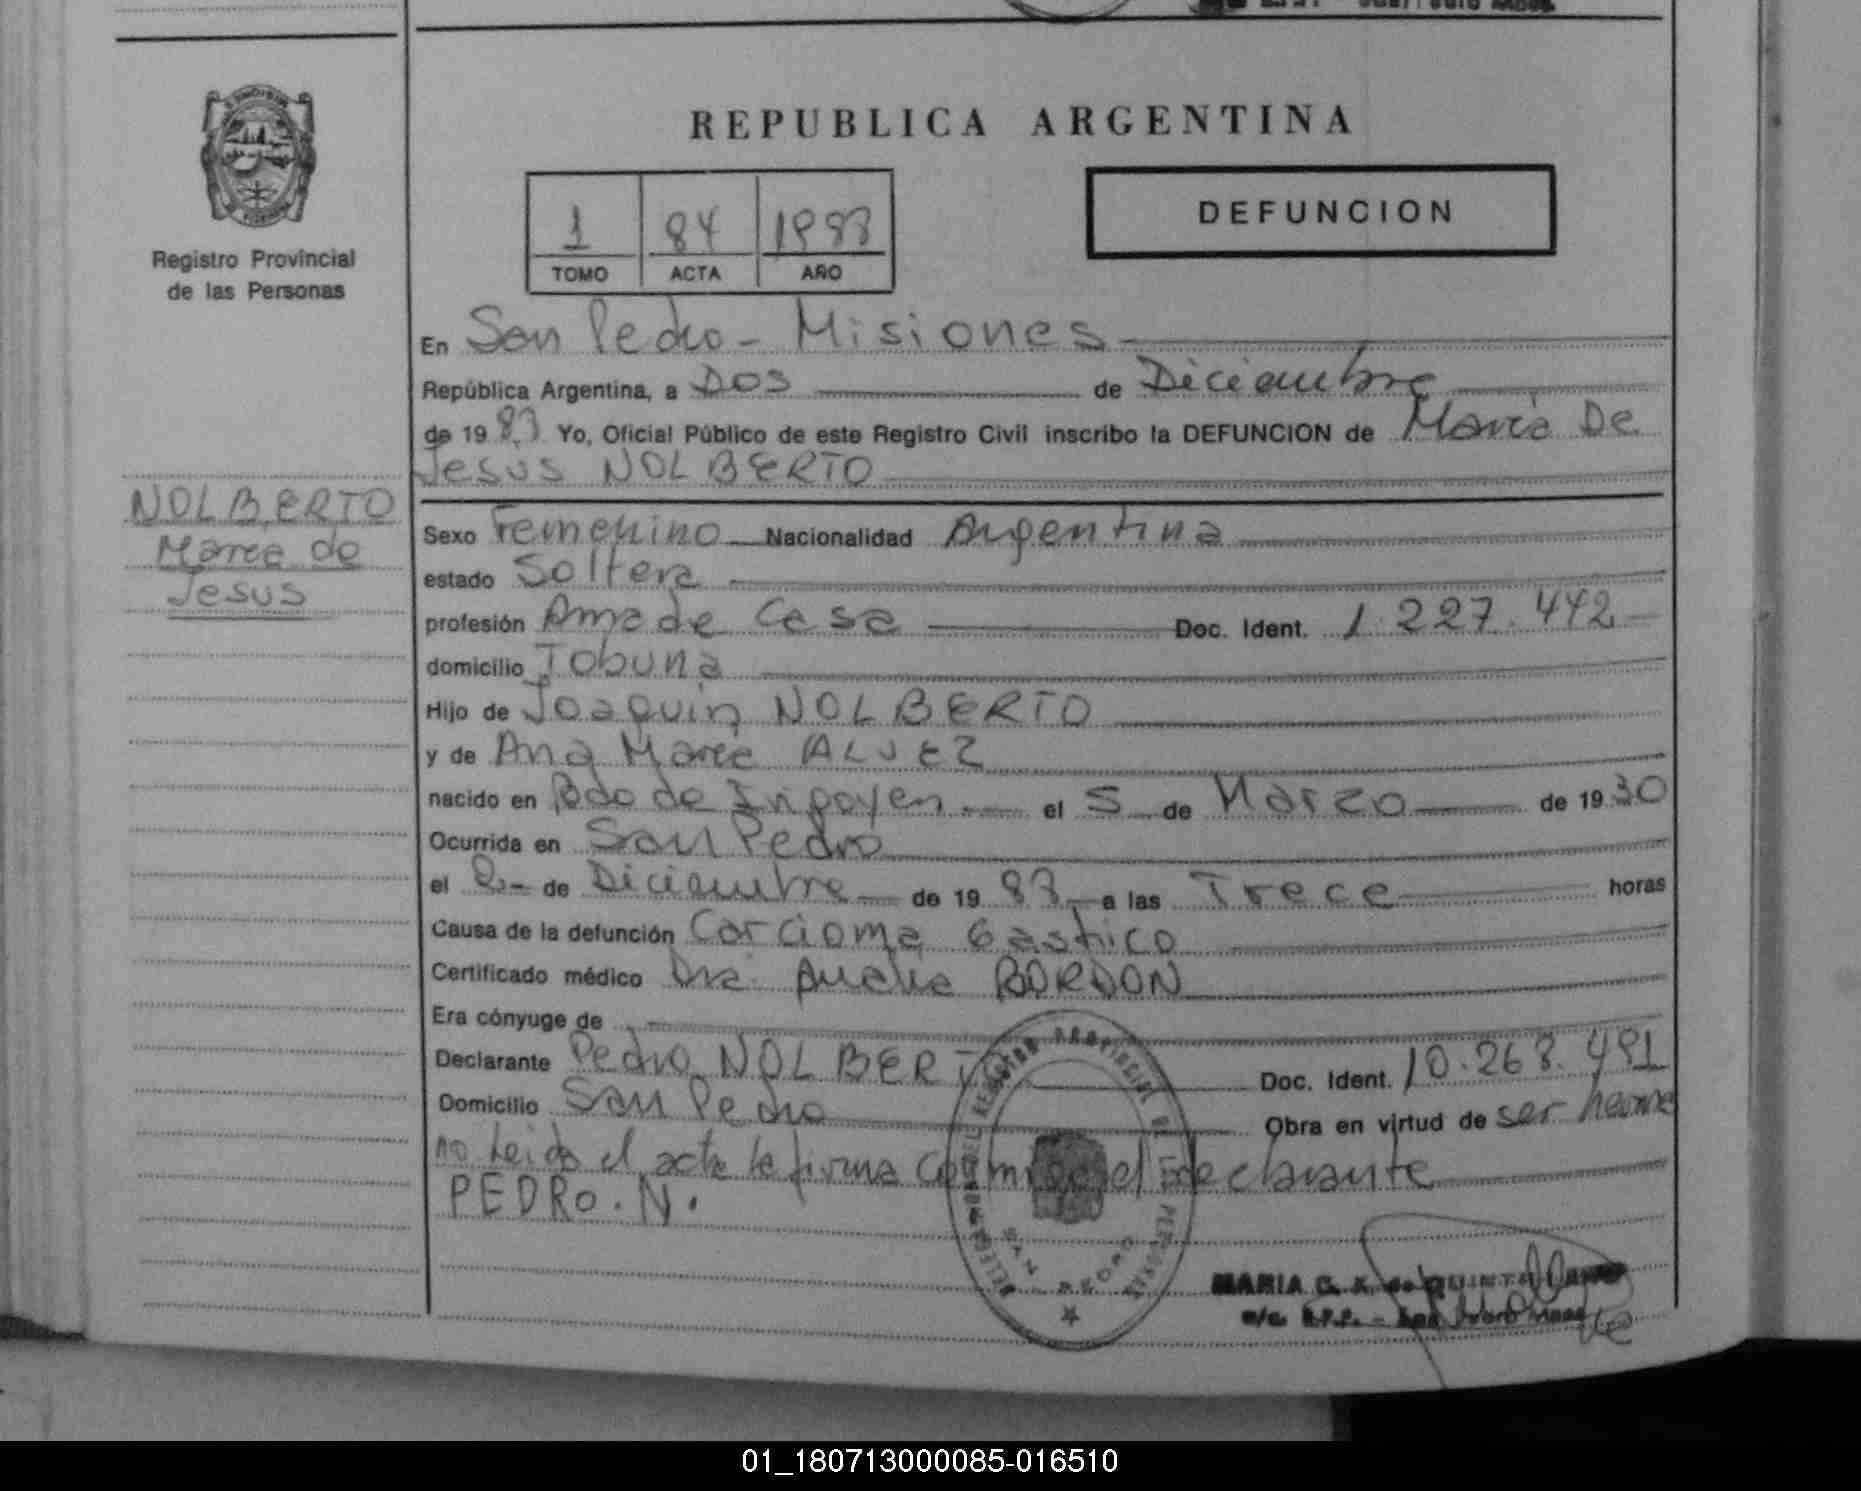 REPUBLICA ARGENTINA
DEFUNCION
1 84 1983
TOMO ACTA AÑO
Registro Provincial
de las Personas
NOLBERTO
Maria de
Jesus
En San Pedro - Misiones
República Argentina, a Dos de Diciembre
de 1983 Yo, Oficial Público de este Registro Civil inscribo la DEFUNCION de Maria De
Jesus NOLBERTO
Sexo Femenino Nacionalidad Argentina
estado Soltera
profesión Ama de Casa Doc. Ident. 1.227.442
domicilio Tobuna
Hijo de Joaquin NOLBERTO
y de Ana Maria ALVEZ
nacido en Bdo de Irigoyen el 5 de Marzo de 1930
Ocurrida en San Pedro
el 2 de Diciembre de 1983 a las Trece horas
Causa de la defunción Carcioma Gastrico
Certificado médico Dra. Analia BORDON
Era cónyuge de
Declarante Pedro NOLBERTO Doc. Ident. 10.268.491
Domicilio San Pedro Obra en virtud de ser herma
no Leida el acta la firma conmigo el declarante
PEDRO. N.
REGISTRO PROVINCIAL DE PERSONAS
SAN PEDRO
MARIA G. QUINTANA
01_180713000085-016510